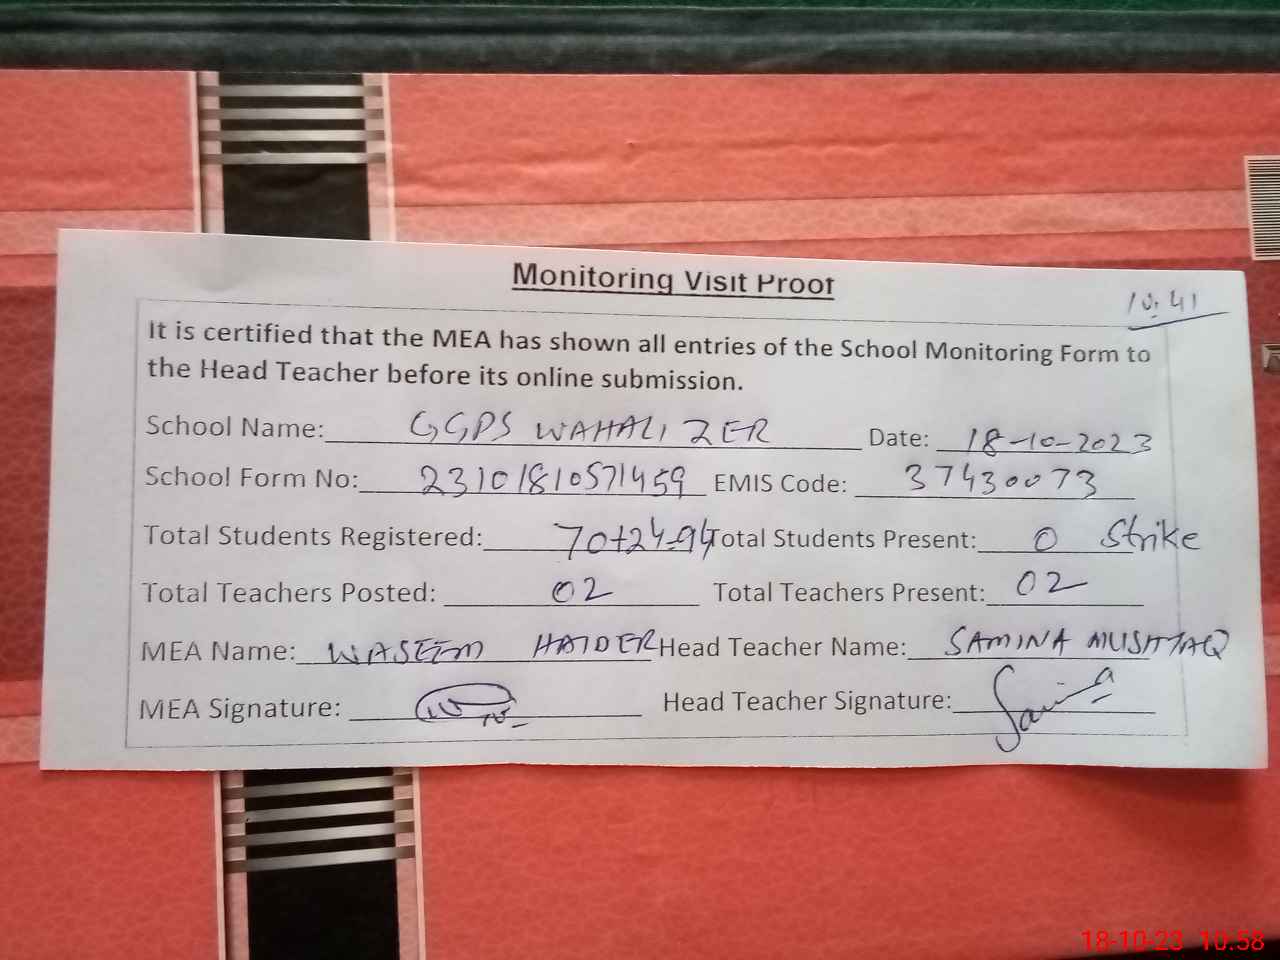 Monitoring Visit Proof
10:41
It is certified that the MEA has shown all entries of the School Monitoring Form to
the Head Teacher before its online submission.
School Name: GGPS WAHALI ZER Date: 18-10-2023
School Form No: 23101810571459 EMIS Code: 37430073
Total Students Registered: 70+24=94 Total Students Present: 0 Strike
Total Teachers Posted: 02 Total Teachers Present: 02
MEA Name: WASEEM HAIDER Head Teacher Name: SAMINA MUSHTAQ
MEA Signature: Head Teacher Signature:
18-10-23 10:58